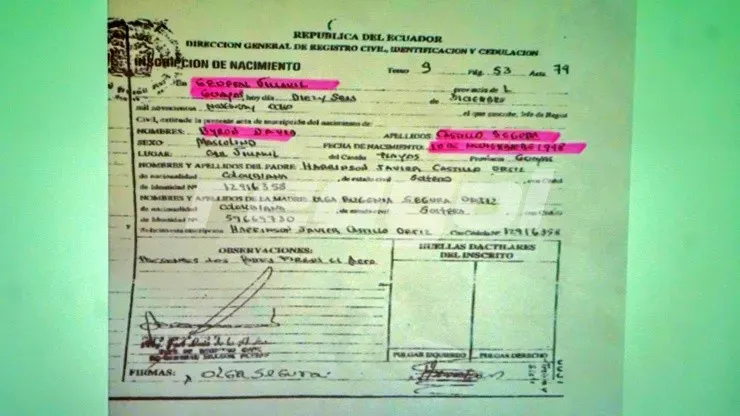 REPUBLICA DEL ECUADOR
DIRECCION GENERAL DE REGISTRO CIVIL, IDENTIFICACION Y CEDULACION
INSCRIPCION DE NACIMIENTO Tomo 9 Pág. 53 Acta 79
En General Villamil provincia de
Guayas hoy día Diez y Seis de
mil novecientos noventa y ocho el que suscribe, Jefe de Registro
Civil, extiende la presente acta de inscripción del nacimiento de:
NOMBRES: Byron David APELLIDOS Castillo Segura
SEXO: Masculino FECHA DE NACIMIENTO: 10 de noviembre 1998
LUGAR: Gral Villamil del Cantón Playas Provincia Guayas
NOMBRES Y APELLIDOS DEL PADRE HARRINSON JAVIER CASTILLO ORTIZ
de nacionalidad Colombiana de estado civil Soltero con Cédula
de Identidad Nº 12916358
NOMBRES Y APELLIDOS DE LA MADRE OLGA EUGENIA SEGURA ORTIZ
de nacionalidad Colombiana de estado civil Soltera con Cédula
de Identidad Nº 59669730
HARRINSON JAVIER CASTILLO ORTIZ Con Cédula Nº 12916358
OBSERVACIONES:
HUELLAS DACTILARES
DEL INSCRITO
PULGAR IZQUIERDO PULGAR DERECHO
FIRMAS: OLGA SEGURA